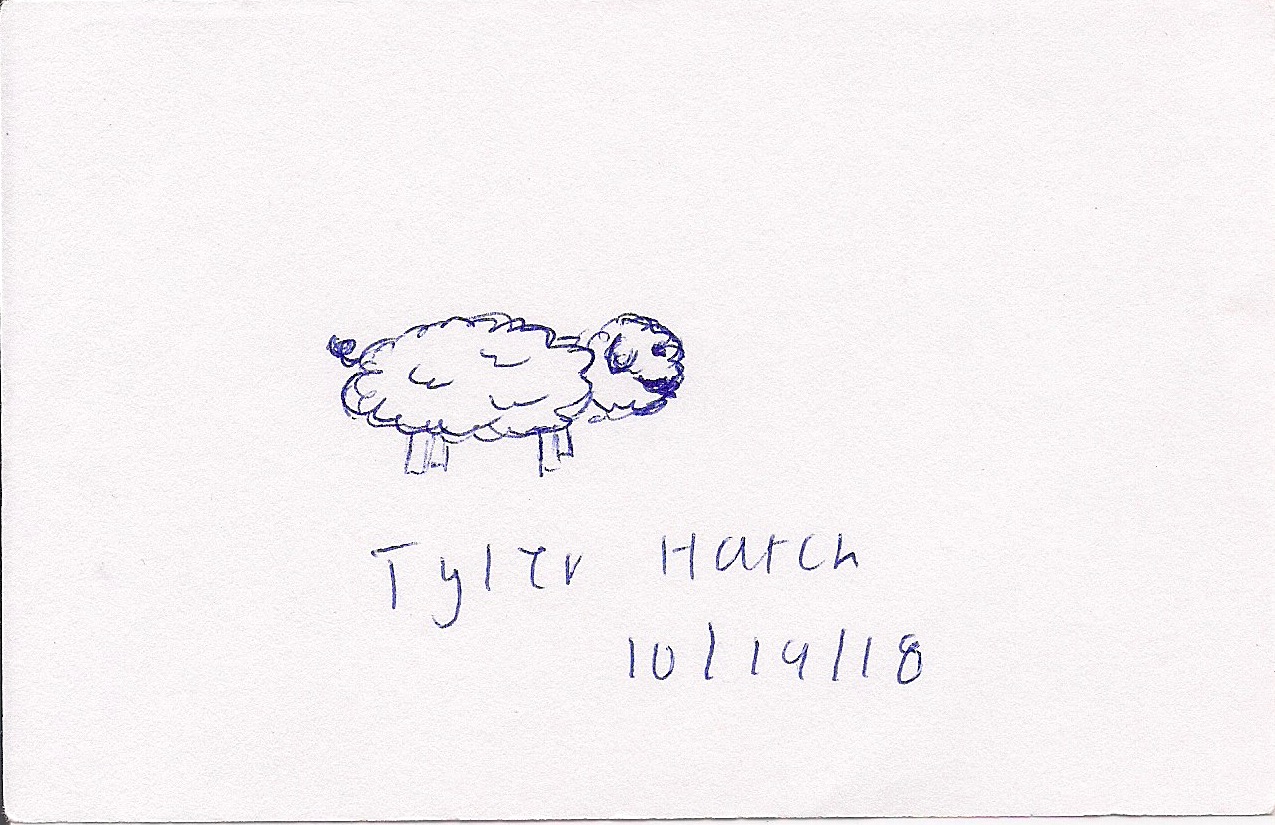 Tyler Hatch
10/19/18